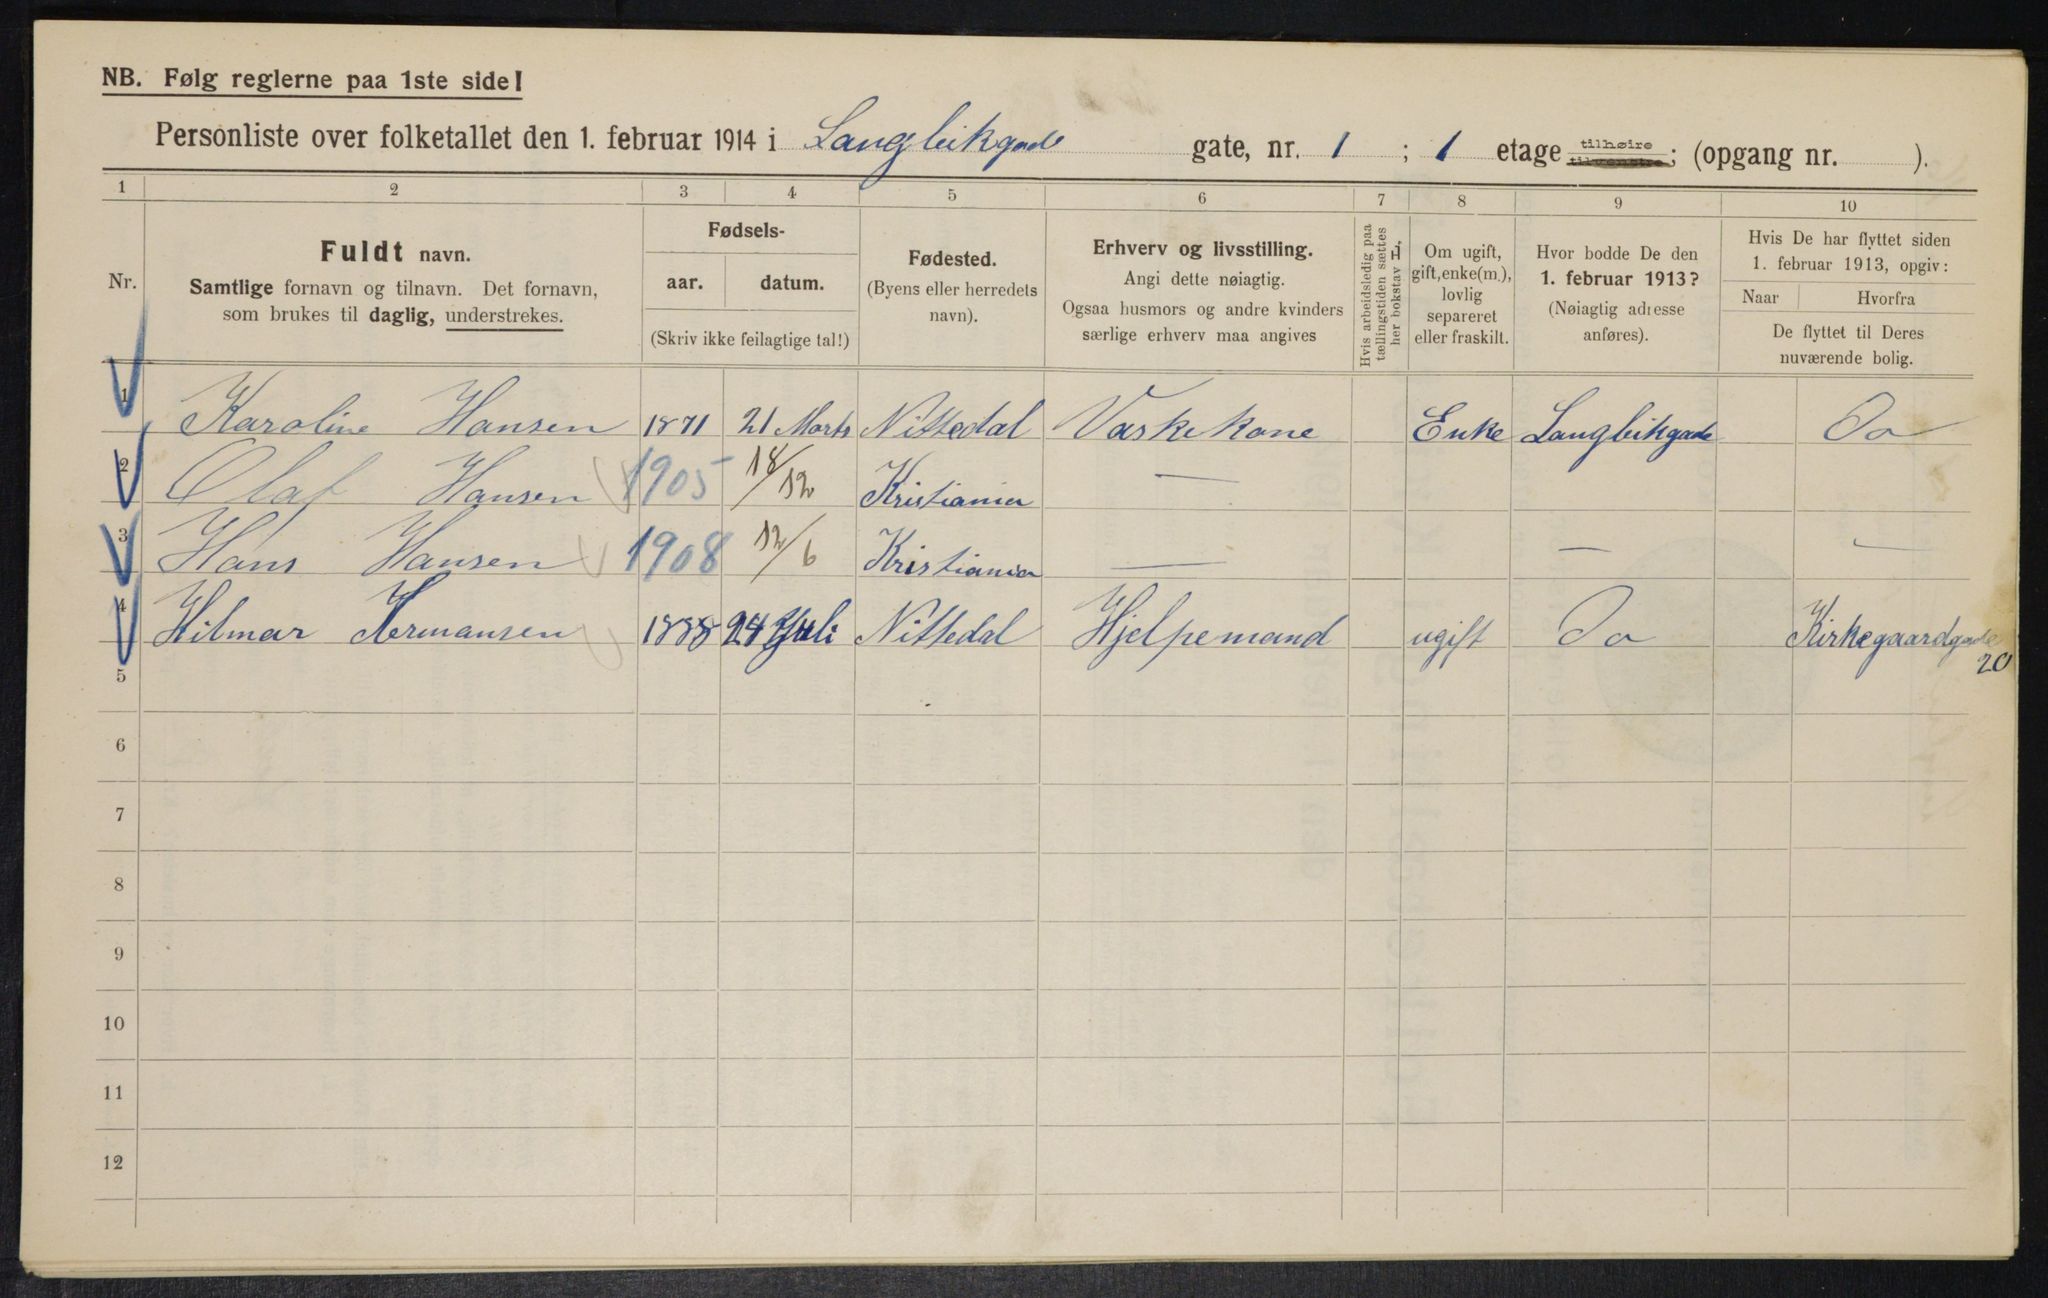 NB. Følg reglerne paa 1ste side!
Personliste over folketallet den 1. februar 1914 i Langleikgade gate, nr. 1 ; 1 etage tilhøire tilvenstre; (opgang nr. ).
1 2 3 4 5 6 7 8 9 10
Nr.
Fuldt navn.
Samtlige fornavn og tilnavn. Det fornavn,
som brukes til daglig, understrekes.
Fødsels-
aar. datum.
(Skriv ikke feilagtige tal!)
Fødested.
(Byens eller herredets
navn).
Erhverv og livsstilling.
Angi dette nøiagtig.
Ogsaa husmors og andre kvinders
særlige erhverv maa angives
Hvis arbeidsledig paa
tællingstiden sættes
her bokstav L.
Om ugift,
gift, enke(m.),
lovlig
separeret
eller fraskilt.
Hvor bodde De den
1. februar 1913?
(Nøiagtig adresse
anføres).
Hvis De har flyttet siden
1. februar 1913, opgiv:
Naar Hvorfra
De flyttet til Deres
nuværende bolig.
1 Karoline Hansen 1871 21 Marts Nittedal Vaskekone Enke Langleikgade Do
2 Olaf Hansen 1905 18/12 Kristiania —
3 Hans Hansen 1908 12/6 Kristiania — — —
4 Hilmar Hermansen 1888 24 Juli Nittedal Hjelpemand ugift Do Kirkegaardgade
20
5
6
7
8
9
10
11
12